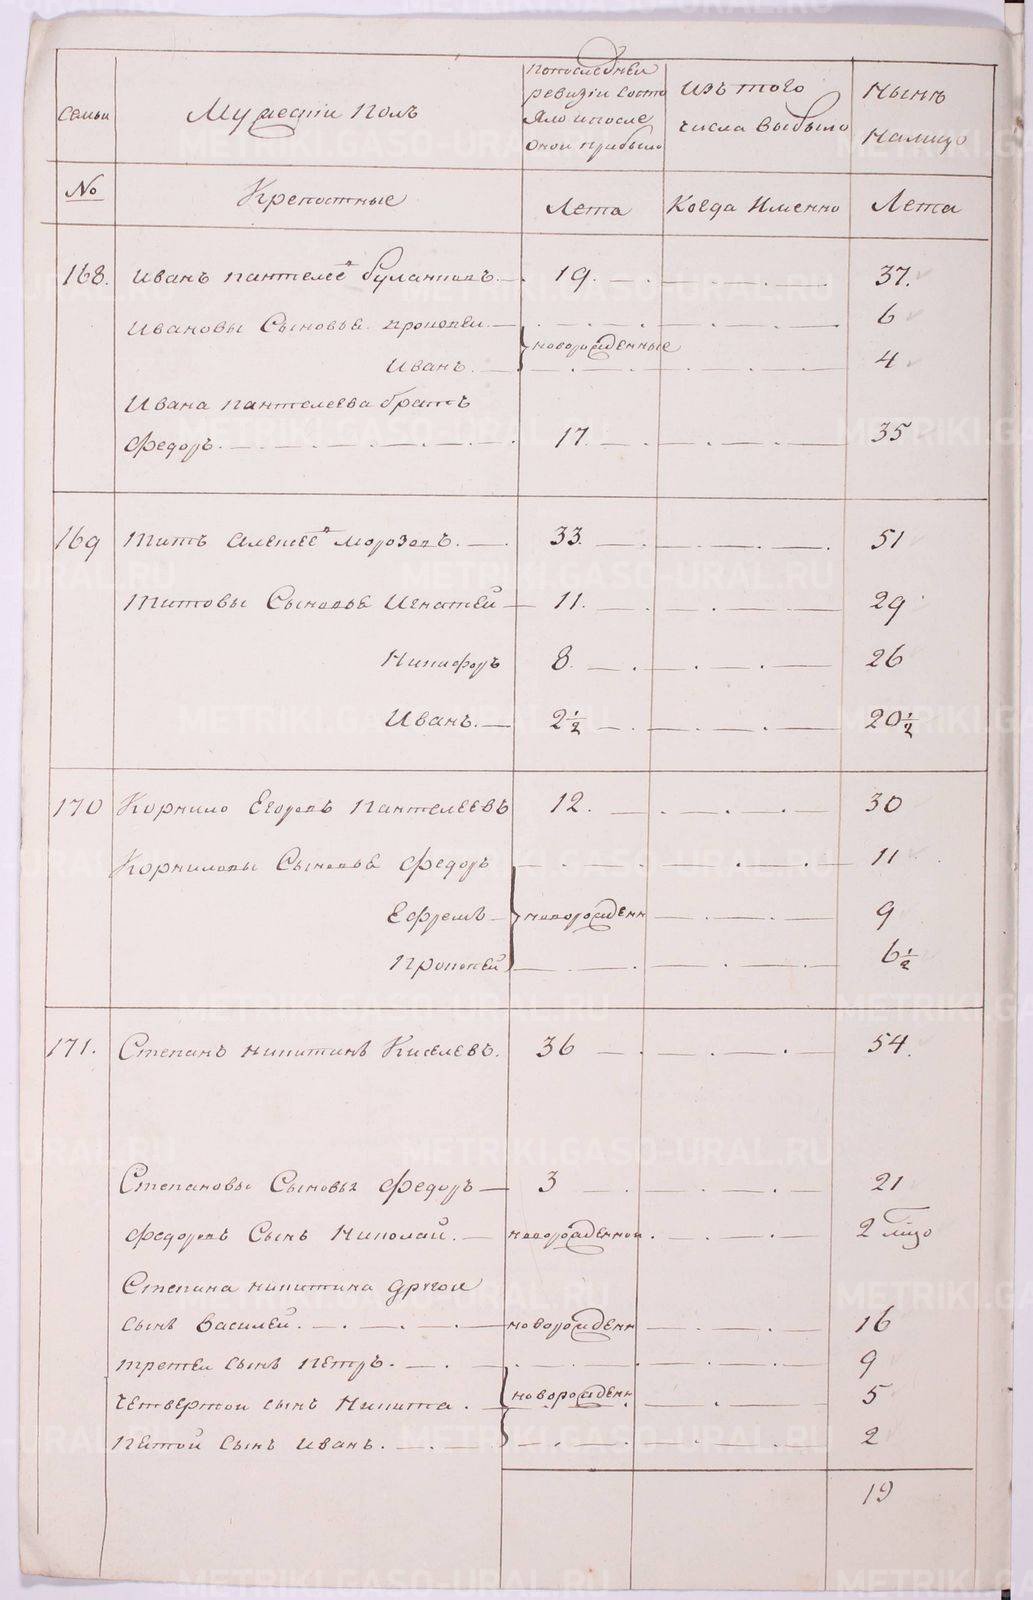 семьи
Мужескiй Полъ
попоследней
ревизiи состо
яло ипосле
оной прибыло
изъ того
числа выбыло
Нынѣ
Налицо
№
Крепостные
Лета
Когда Именно
Лета
168. Иванъ пантелеев 19. 37.
Ивановы Сыновья прокопей 6
новорожденные
Иванъ. 4
Ивана пантелеева братъ
Федоръ. 17 35
169 Титъ Алексеев Морозовъ. 33. 51
Титовы Сыновья Игнатей 11. 29
Никифоръ 8. 26
Иванъ. 2½ 20½
170 Корнило Егоровъ Пантелеевъ 12. 30
Корниловы Сыновья Федоръ 11
Ефремъ новорожденн 9
Прокопей 6½
171. Степанъ никитинъ Киселевъ. 36 54.
Степановы Сыновья Федоръ 3 21
Федоровъ Сынъ Николай. новорожденной. 2
Степана никитина другой
сынъ Василей. новорожденн 16
третей сынъ петръ. 9
четвертой сынъ Никита. новорожденн 5
пятой сынъ иванъ. 2
19
METRIKI.GASO-URAL.RU